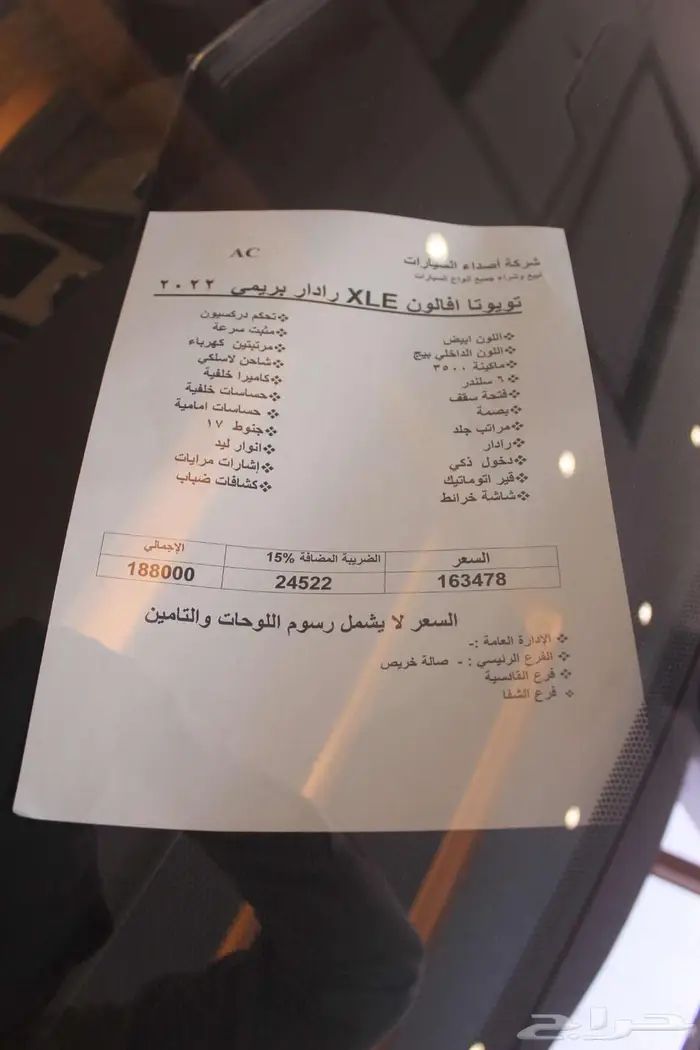 AC
شركة أصداء السيارات
لبيع وشراء جميع انواع السيارات
تويوتا افالون XLE رادار بريمي ٢٠٢٢
❖اللون ابيض
❖اللون الداخلي بيج
❖ماكينة ٣٥٠٠
❖٦ سلندر
❖فتحة سقف
❖بصمة
❖مراتب جلد
❖رادار
❖دخول ذكي
❖قير اتوماتيك
❖شاشة خرائط
❖تحكم دركسيون
❖مثبت سرعة
❖مرتبتين كهرباء
❖شاحن لاسلكي
❖كاميرا خلفية
❖حساسات خلفية
❖حساسات امامية
❖جنوط ١٧
❖انوار ليد
❖إشارات مرايات
❖كشافات ضباب
السعر الضريبة المضافة 15% الإجمالي
163478 24522 188000
السعر لا يشمل رسوم اللوحات والتامين
❖ الإدارة العامة :-
❖ الفرع الرئيسي : - صالة خريص
❖ فرع القادسية
❖ فرع الشفا
حراج